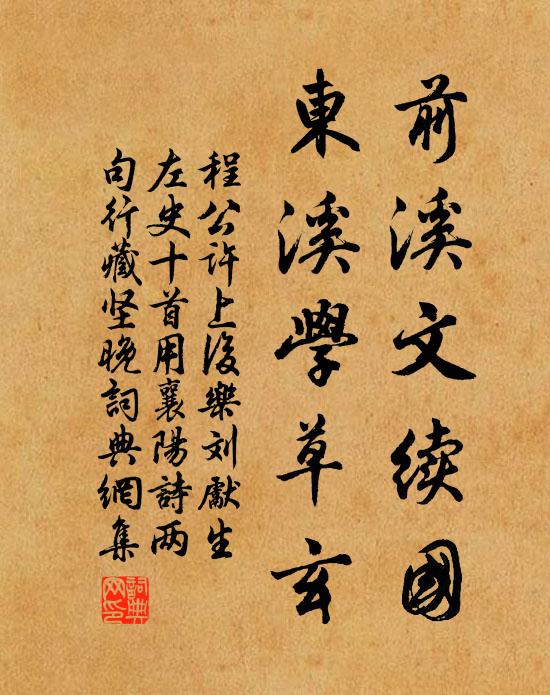 前溪文续國
東溪學草玄
程公許上後樂刘獻生
左史十首用襄陽詩两
句行藏坚晚詞典網集
詞典網印